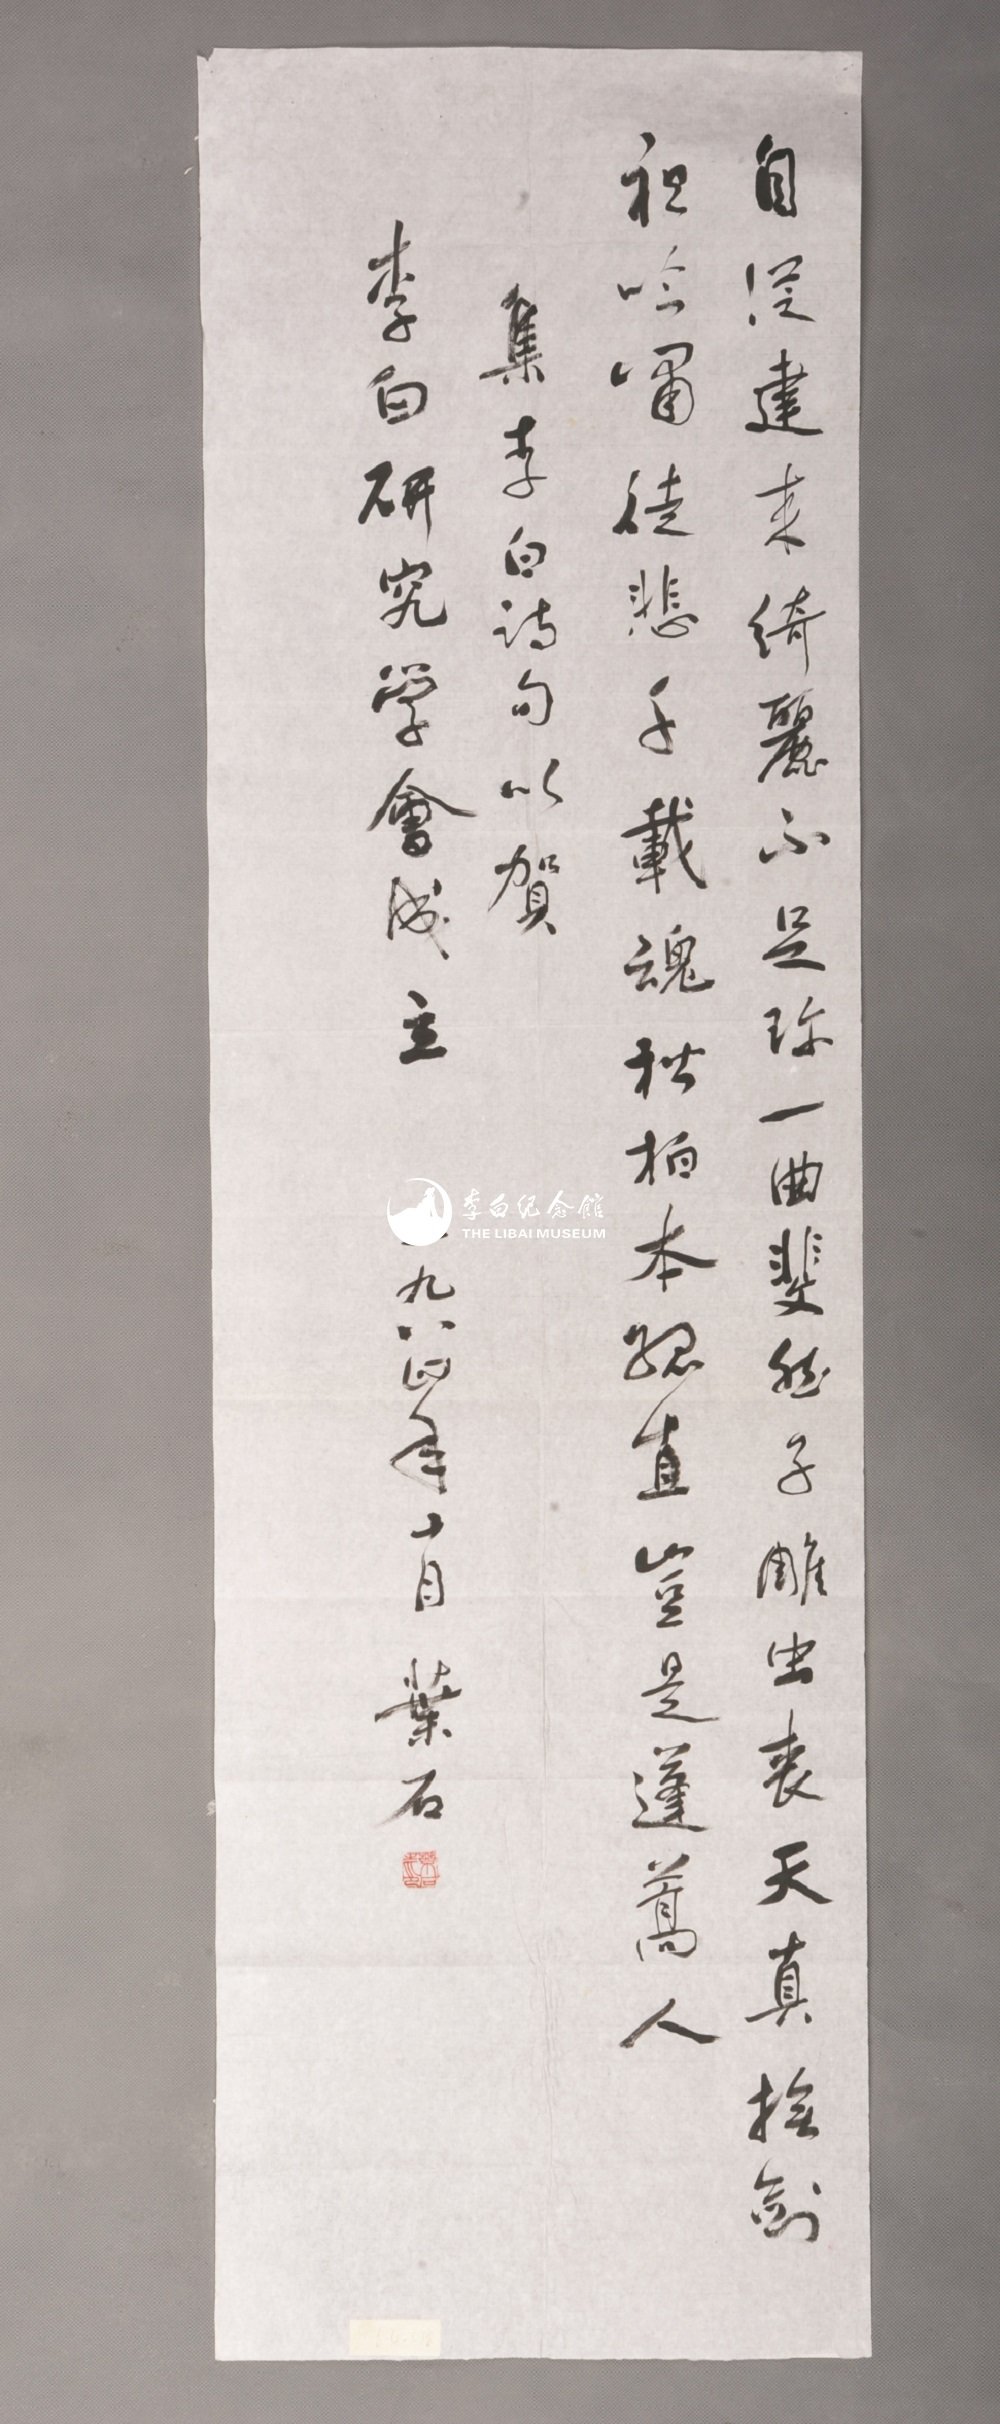 自從建来綺麗不足珍一曲斐然子雕虫丧天真劍
吟嘯徒悲千載魂松柏本孤直豈是蓬蒿人
集李白詩句以賀
李白研究学會成立
一九八四年十月 葉石
李白纪念館
THE LIBAI MUSEUM